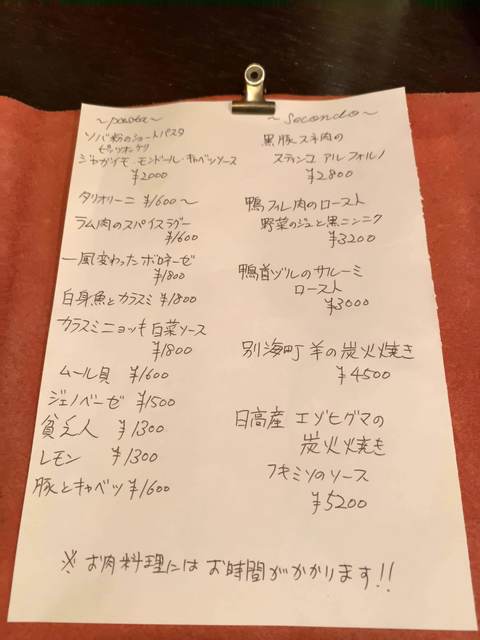 ~pasta~
ソバ粉のショートパスタ
ピッツォッケリ
ジャガイモ モンドール・キャベツソース
¥2000
タリオリーニ ¥1600~
ラム肉のスパイスラグー
¥1600
一風変わったボロネーゼ
¥1800
白身魚とカラスミ ¥1800
カラスミニョッキ 白菜ソース
¥1800
ムール貝 ¥1600
ジェノベーゼ ¥1500
貧乏人 ¥1300
レモン ¥1300
豚とキャベツ ¥1600
~Secondo~
黒豚スネ肉の
スティンコ アル フォルノ
¥2800
鴨フィレ肉のロースト
野菜のジュと黒ニンニク
¥3200
鴨首ヅルのサルーミ
ロースト
¥3000
別海町 羊の炭火焼き
¥4500
日高産 エゾヒグマの
炭火焼き
フキミソのソース
¥5200
※お肉料理にはお時間がかかります!!